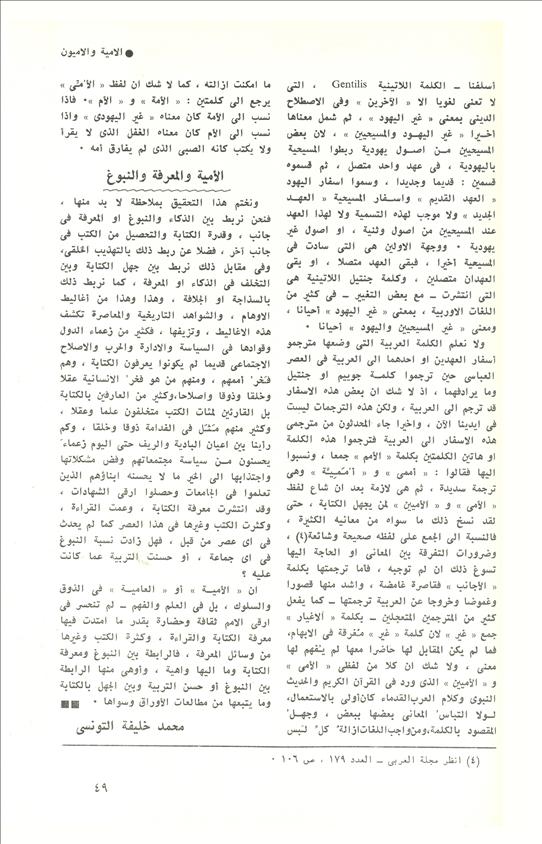 ● الامية والاميون
أسلفنا ــ الكلمة اللاتينية Gentilis ، التى
لا تعنى لغويا الا « الآخرين » وفى الاصطلاح
الدينى بمعنى « غير اليهود » ، ثم شمل معناها
أخيرا « غير اليهود والمسيحيين » ، لان بعض
المسيحيين من اصول يهودية ربطوا المسيحية
باليهودية ، فى عهد واحد متصل ، ثم قسموه
قسمين : قديما وجديدا ، وسموا اسفار اليهود
« العهد القديم » واسفار المسيحية « العهد
الجديد » ولا موجب لهذه التسمية ولا لهذا العهد
عند المسيحيين من اصول وثنية ، او اصول غير
يهودية ٠ ووجهة الاولين هى التى سادت فى
المسيحية أخيرا ، فبقى العهد متصلا ، او بقى
العهدان متصلين ، وكلمة جنتيل اللاتينية هى
التى انتشرت ــ مع بعض التغيير ــ فى كثير من
اللغات الاوربية ، بمعنى « غير اليهود » أحيانا ،
ومعنى « غير المسيحيين واليهود » أحيانا ٠
ولا نعلم الكلمة العربية التى وضعها مترجمو
أسفار العهدين او احدهما الى العربية فى العصر
العباسى حين ترجموا كلمة جوييم او جنتيل
وما يرادفهما ، اذ لا شك ان بعض هذه الاسفار
قد ترجم الى العربية ، ولكن هذه الترجمات ليست
فى ايدينا الآن ، واخيرا جاء المحدثون من مترجمى
هذه الاسفار الى العربية فترجموا هذه الكلمة
او هاتين الكلمتين بكلمة « الأمم » جمعا ، ونسبوا
اليها فقالوا : « أممى » و « أممية » وهى
ترجمة سديدة ، ثم هى لازمة بعد ان شاع لفظ
« الأمى » و « الأميين » لمن يجهل الكتابة ، حتى
لقد نسخ ذلك ما سواه من معانيه الكثيرة ،
فالنسبة الى الجمع على لفظه صحيحة وشائعة(٤) ،
وضرورات التفرقة بين المعانى او الحاجة اليها
تسوغ ذلك ان لم توجبه ، فأما ترجمتها بكلمة
« الأجانب » فقاصرة غامضة ، واشد منها قصورا
وغموضا وخروجا عن العربية ترجمتها ــ كما يفعل
كثير من المترجمين المتعجلين ــ بكلمة « الاغيار »
جمع « غير » لان كلمة « غير » مغرقة فى الابهام،
فما لم يكن المقابل لها حاضرا معها لم يفهم لها
معنى ، ولا شك ان كلا من لفظى « الأمى »
و « الأميين » الذى ورد فى القرآن الكريم والحديث
النبوى وكلام العرب القدماء كان أولى بالاستعمال،
لولا التباس المعانى بعضها ببعض ، وجهل
المقصود بالكلمة، ومن واجب اللغات ازالة كل لبس
ما امكنت ازالته ، كما لا شك ان لفظ « الأمى »
يرجع الى كلمتين : « الأمة » و « الأم »٠ فاذا
نسب الى الأمة كان معناه « غير اليهودى » واذا
نسب الى الأم كان معناه الغفل الذى لا يقرأ
ولا يكتب كأنه الصبى الذى لم يفارق أمه ٠
الأمية والمعرفة والنبوغ
ونختم هذا التحقيق بملاحظة لا بد منها ،
فنحن نربط بين الذكاء والنبوغ او المعرفة فى
جانب ، وقدرة الكتابة والتحصيل من الكتب فى
جانب آخر ، فضلا عن ربط ذلك بالتهذيب الخلقى،
وفى مقابل ذلك نربط بين جهل الكتابة وبين
التخلف فى الذكاء او المعرفة ، كما نربط ذلك
بالسذاجة او الجلافة ، وهذا وهذا من أغاليط
الاوهام ، والشواهد التاريخية والمعاصرة تكشف
هذه الاغاليط ، وتزيفها ، فكثير من زعماء الدول
وقوادها فى السياسة والادارة والحرب والاصلاح
الاجتماعى قديما لم يكونوا يعرفون الكتابة ، وهم
فخر أممهم ، ومنهم من هو فخر الانسانية عقلا
وخلقا وذوقا واصلاحا،وكثير من العارفين بالكتابة
بل القارئين لمئات الكتب متخلفون علما وعقلا ،
وكثير منهم مثل فى الفدامة ذوقا وخلقا ، وكم
رأينا بين اعيان البادية والريف حتى اليوم زعماء
يحسنون من سياسة مجتمعاتهم وفض مشكلاتها
واجتذابها الى الخير ما لا يحسنه ابناؤهم الذين
تعلموا فى الجامعات وحصلوا ارقى الشهادات ،
وقد انتشرت معرفة الكتابة ، وعمت القراءة ،
وكثرت الكتب وغيرها فى هذا العصر كما لم يحدث
فى اى عصر من قبل ، فهل زادت نسبة النبوغ
فى اى جماعة ، أو حسنت التربية عما كانت
عليه ؟
ان « الأمية » أو « العامية » فى الذوق
والسلوك ، بل فى العلم والفهم ــ لم تنحسر فى
ارقى الامم ثقافة وحضارة بقدر ما امتدت فيها
معرفة الكتابة والقراءة ، وكثرة الكتب وغيرها
من وسائل المعرفة ، فالرابطة بين النبوغ ومعرفة
الكتابة وما اليها واهية ، وأوهى منها الرابطة
بين النبوغ أو حسن التربية وبين الجهل بالكتابة
وما يتبعها من مطالعات الأوراق وسواها ٠ ■■
محمد خليفة التونسى
(٤) انظر مجلة العربى ــ العدد ١٧٩ ، ص ١٠٦ ٠
٤٩